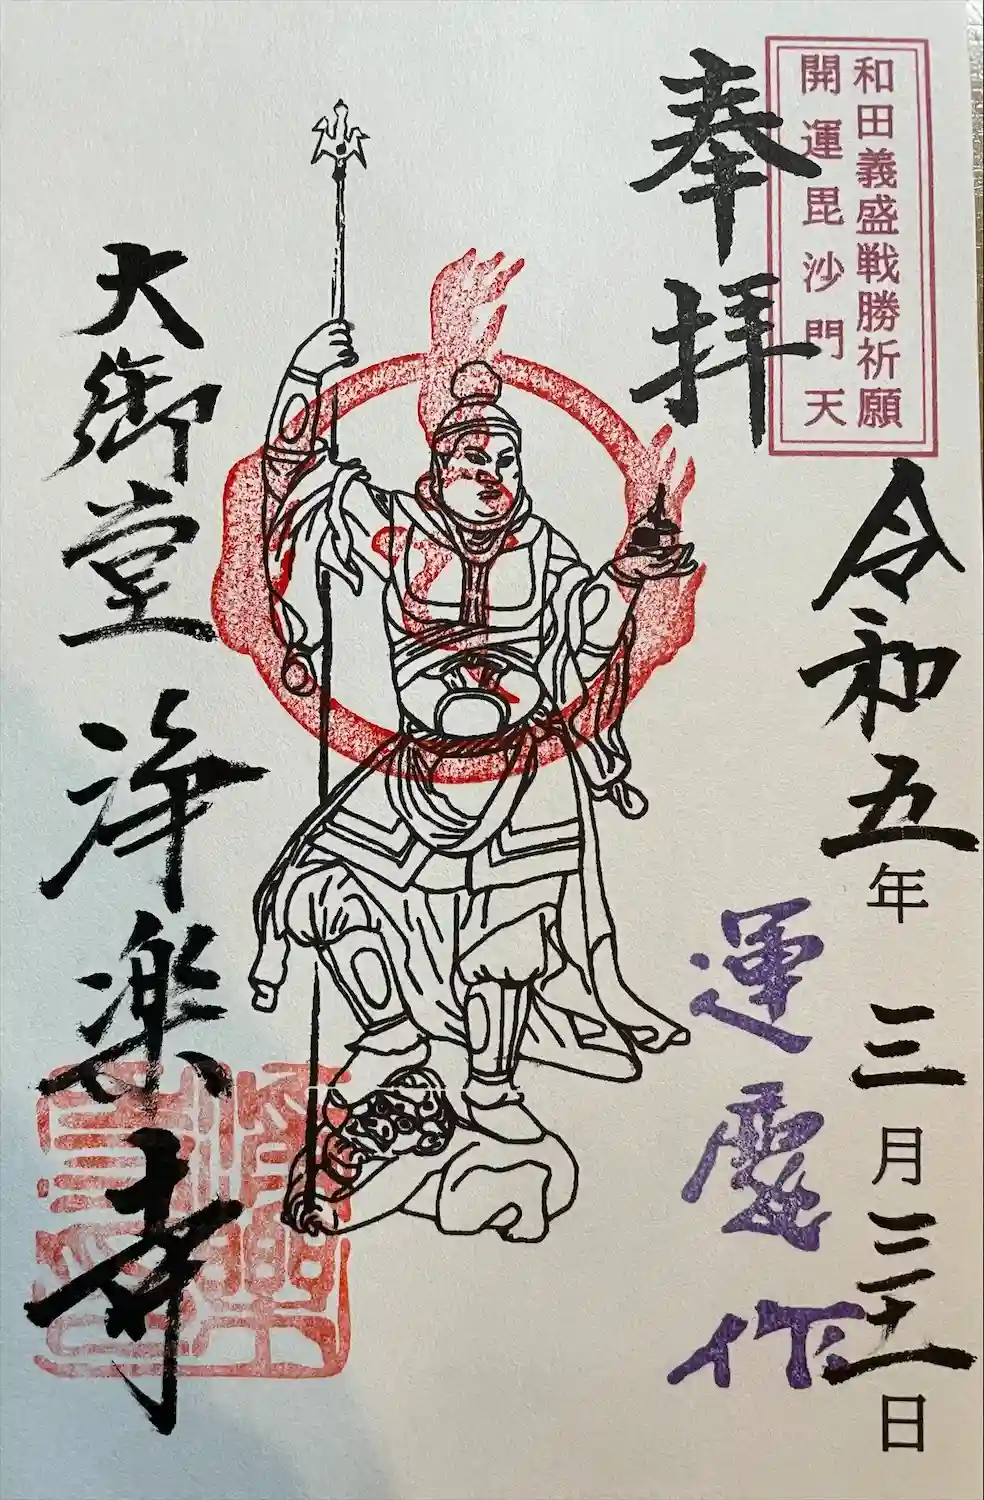 和田義盛戦勝祈願
開運毘沙門天
奉拝
令和五年 三月三十一日
運慶作
大御堂 浄楽寺